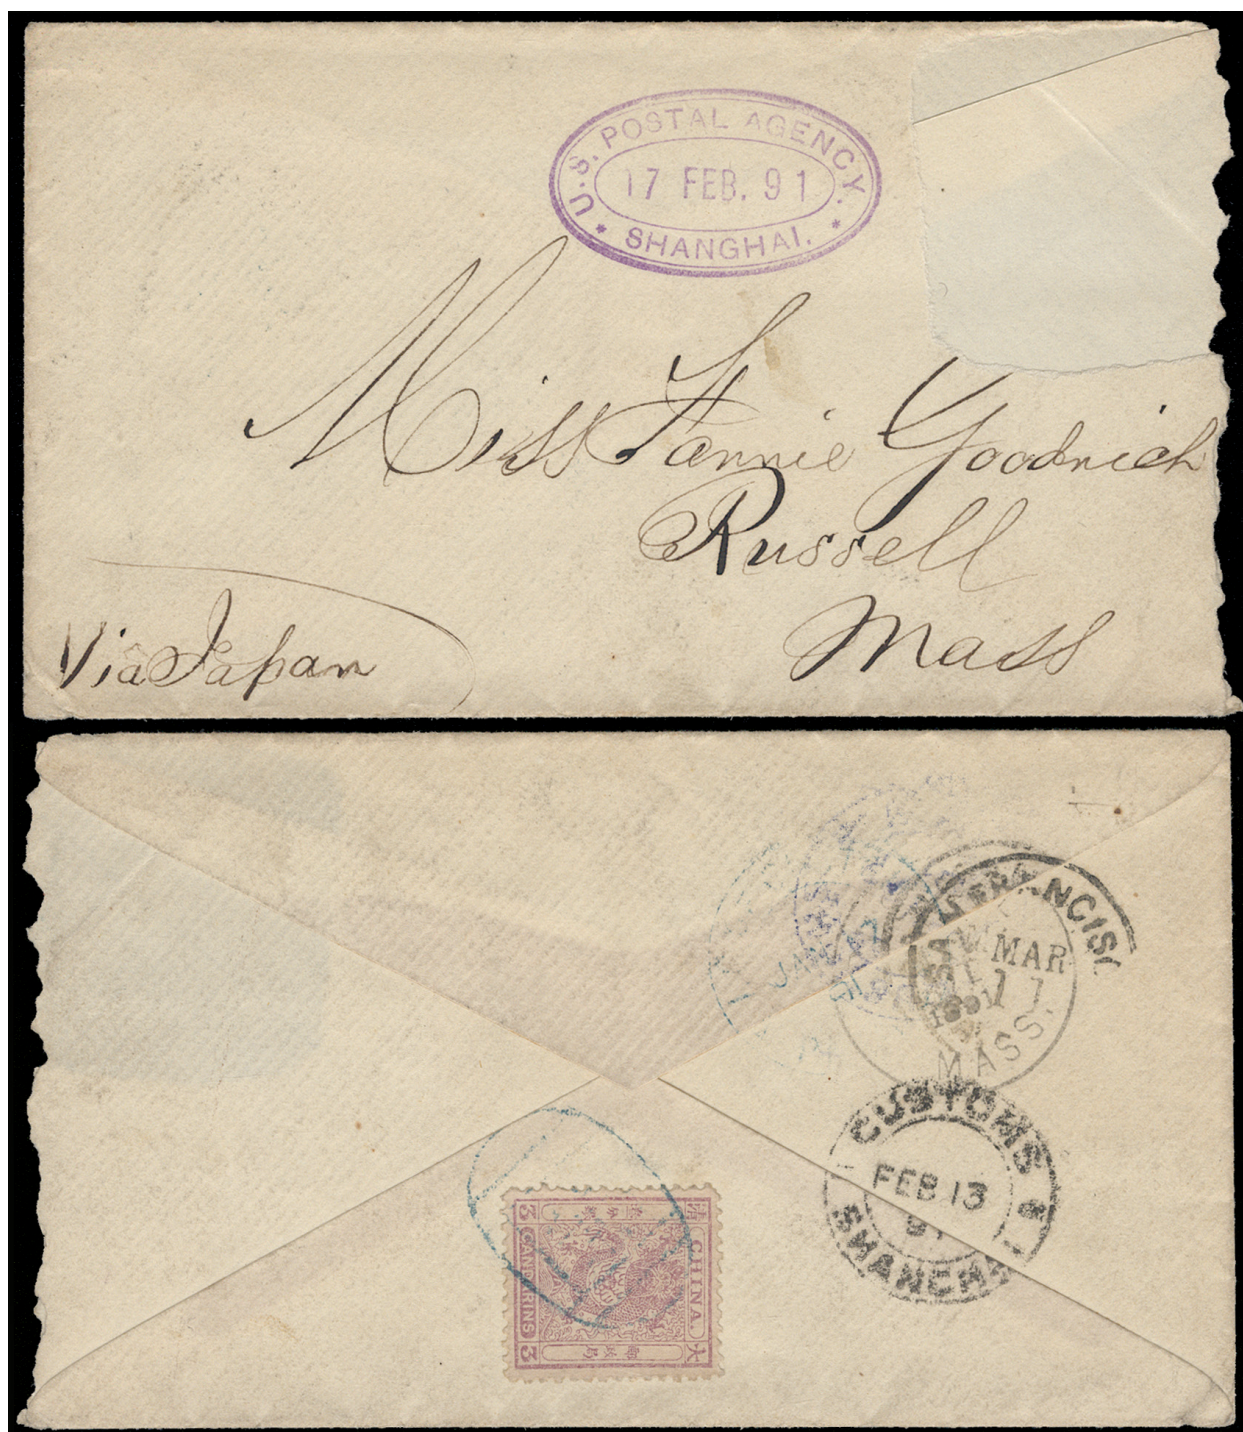 U.S. POSTAL AGENCY.
17 FEB. 91
* SHANGHAI. *
Miss Fannie Goodrich
Russell
Mass
Via Japan
MAR
1891
MASS.
CUSTOMS
FEB 13
91
SHANGHAI
CHINA.
大
清
3 CANDARINS 3
郵政局